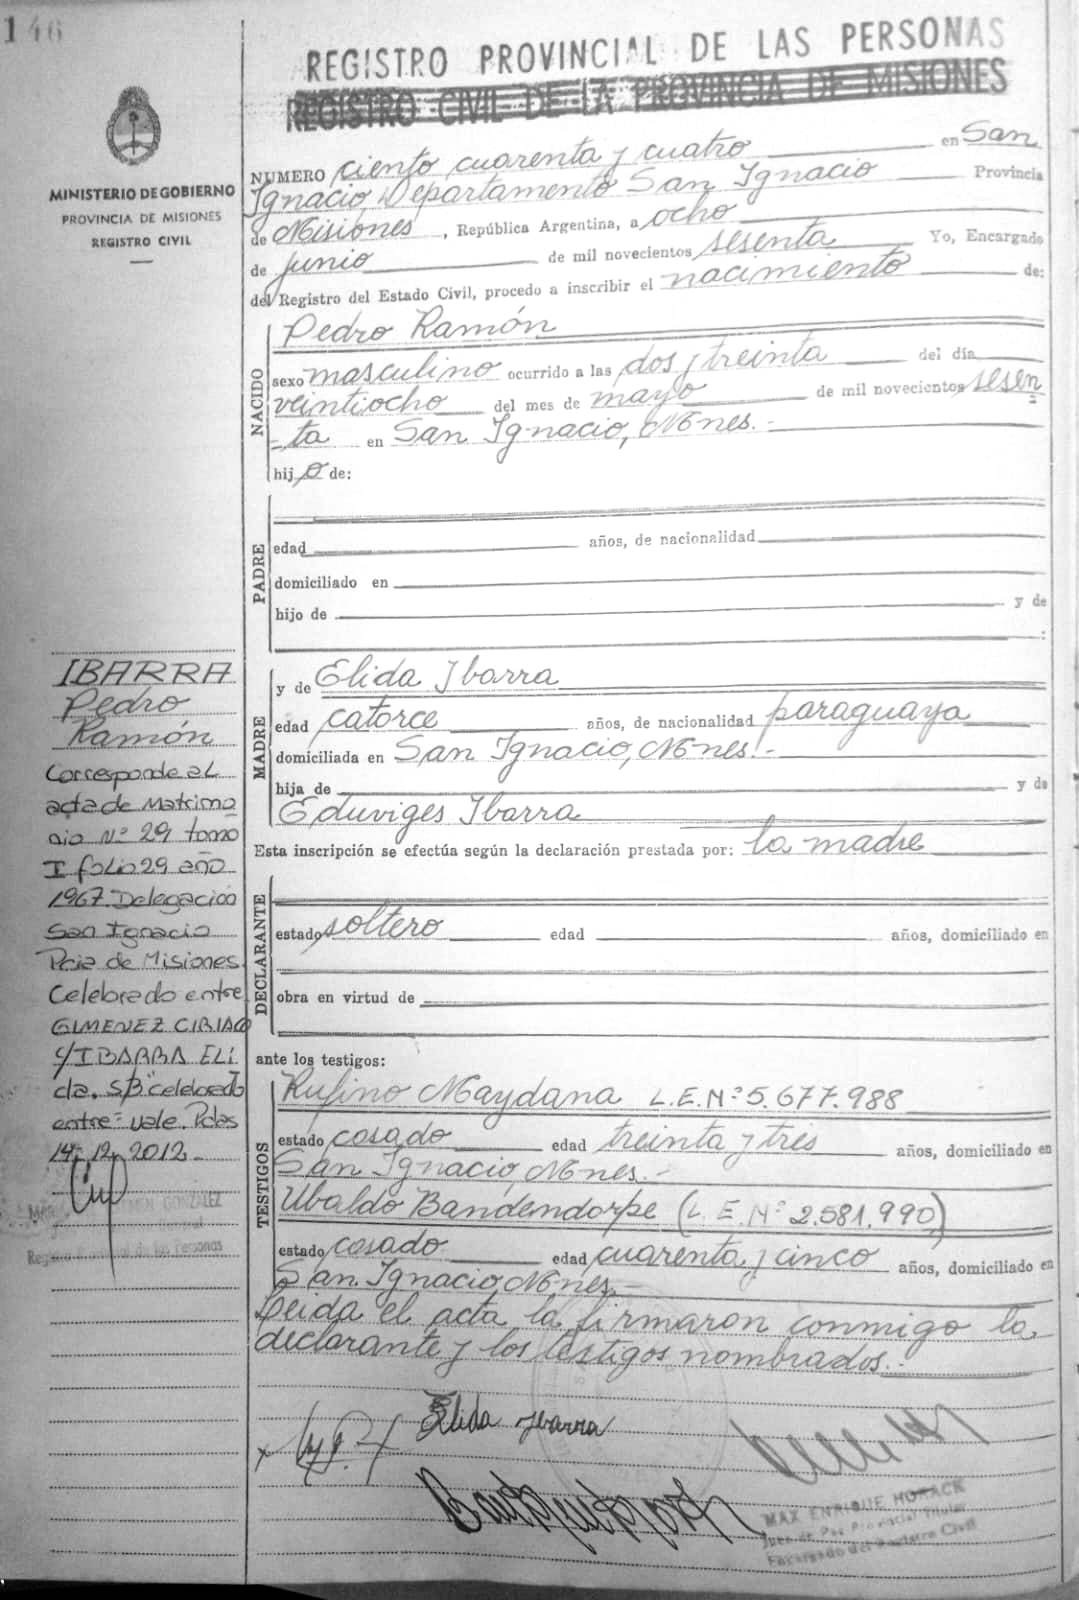 146
REGISTRO PROVINCIAL DE LAS PERSONAS
REGISTRO CIVIL DE LA PROVINCIA DE MISIONES
MINISTERIO DE GOBIERNO
PROVINCIA DE MISIONES
REGISTRO CIVIL
NUMERO ciento cuarenta y cuatro en San
Ignacio, Departamento San Ignacio Provincia
de Misiones, República Argentina, a ocho
de junio de mil novecientos sesenta Yo, Encargado
del Registro del Estado Civil, procedo a inscribir el nacimiento de:
NACIDO
Pedro Ramón
sexo masculino ocurrido a las dos y treinta del día
veintiocho del mes de mayo de mil novecientos sesen
-ta en San Ignacio, Mnes.-
hijo de:
PADRE
edad años, de nacionalidad
domiciliado en
hijo de y de
:
MADRE
y de Elida Ibarra
edad catorce años, de nacionalidad paraguaya
domiciliada en San Ignacio, Mnes.-
hija de y de
Eduviges Ibarra
Esta inscripción se efectúa según la declaración prestada por: la madre
DECLARANTE
estado soltero edad años, domiciliado en
obra en virtud de
ante los testigos:
TESTIGOS
Rufino Maydana L.E.Nº 5.677.988
estado casado edad treinta y tres años, domiciliado en
San Ignacio, Mnes.-
Ubaldo Bandendorpe (L.E.Nº 2.581.990)
estado casado edad cuarenta y cinco años, domiciliado en
San Ignacio, Mnes.-
Leida el acta la firmaron conmigo la
declarante y los testigos nombrados.-
Elida Ibarra
MAX ENRIQUE HORACK
Juez de Paz Provincial Titular
Encargado del Registro Civil
IBARRA
Pedro
Ramón
Corresponde al
acta de Matrimo
nio Nº 29 tomo
I folio 29 año
1967. Delegación
San Ignacio
Pcia de Misiones
Celebrado entre
GIMENEZ CIRIACO
c/IBARRA ELI
da. S/B "celebrado
entre" vale. Pdas
14-12-2012-
GONZALEZ
Registro Provincial de las Personas